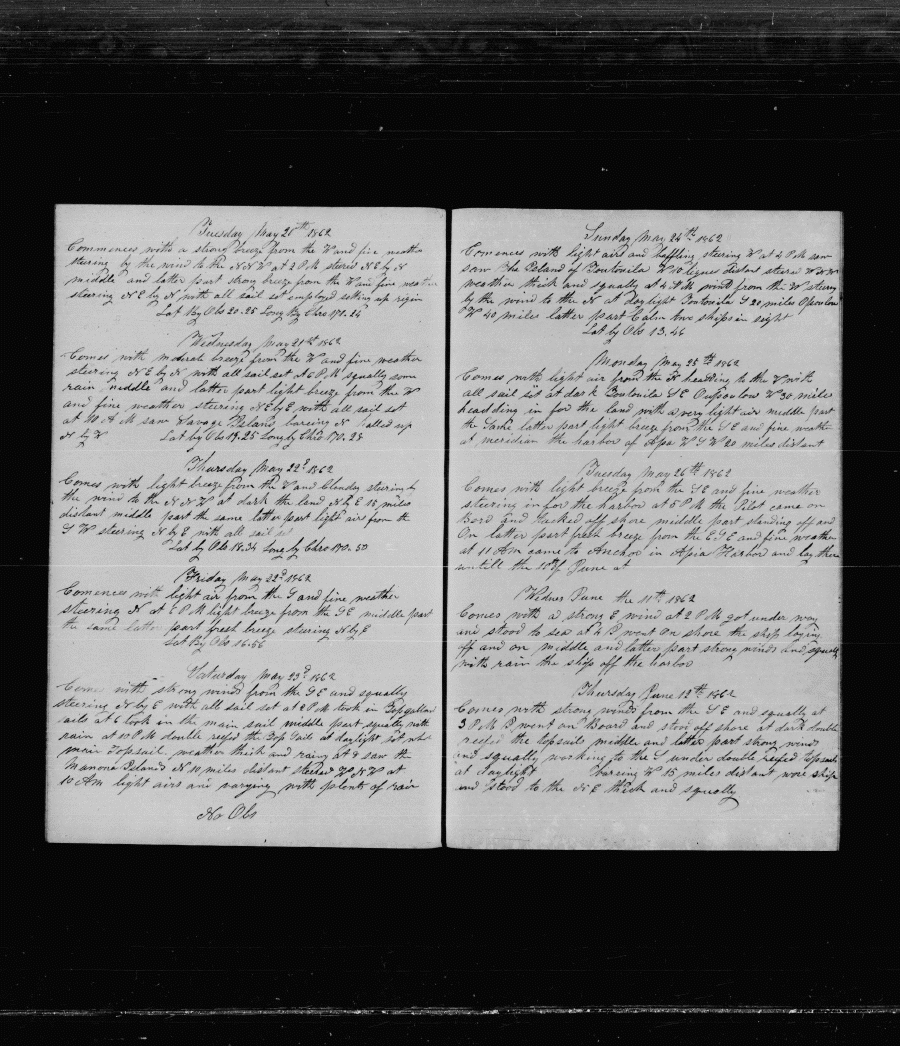 Tuesday May 20th 1862
Commences with a strong breeze from the W and fine weather
steering by the wind to the N N W at 2 P M stered N E by N
middle and latter part strong breeze from the W and fine weather
steering N E by N with all sail set employed setting up rigin
Lat By Obs 20.25 Long By Chro 171.24
Wednesday May 21st 1862
Comes with moderate breeze from the W and fine weather
steering N E by N with all sail set at 6 P M squally some
rain middle and latter part light breeze from the W
and fine weather steering N E by E with all sail set
at 10 A M saw Savage Island bareing N halled up
N by W Lat by Obs 19.25 Long by Chro 170.25
Thursday May 22d 1862
Comes with light breeze from the W and cloudy steering by
the wind to the N N W at dark the land N E E 15 miles
distant middle part the same latter part light airs from the
S W steering N by E with all sail set
Lat by Obs 18.34 Long by Chro 170.50
Friday May 22d 1862
Comences with light air from the S and fine weather
steering N at 6 P M light breeze from the S E middle part
the same latter part fresh breeze steering N by E
Lat By Obs 16.56
Saturday May 23d 1862
Comes with strong winds from the S E and squally
steering N by E with all sail set at 2 P M took in Topgallan
sails at 6 took in the main sail middle part squally with
rain at 10 P M double reefed the Top Sails at daylight Set whole
main Topsail weather thick and rainy at 9 saw the
Manono Island N 10 miles distant steered W N W at
10 A m light airs and varying with plenty of rain
No Obs
Sunday May 24th 1862
Comences with light airs and baffling steering W at 4 P M saw
saw the Island of Tootooila W 10 ligues distant stered W N W
weather thick and squally at 4 P M wind from the W steering
by the wind to the N at daylight Tootooila S 20 miles Opoulou
W 40 miles latter part Calm two ships in sight
Lat by Obs 13.46
Monday May 25th 1862
Comes with light air from the N heading to the W with
all sail set at dark Tootooila S E Oupoulou W 30 miles
headding in for the land with a very light air middle part
the same latter part light breeze from the S E and fine weather
at meridian the harbor of Apa W S W 20 miles distant
Tuesday May 26th 1862
Comes with light breeze from the S E and fine weather
steering in for the harbor at 5 P M the Pilot came on
Bord and tacked off shore middle part standing off and
On latter part fresh breeze from the E S E and fine weather
at 11 A m came to Anchor in Apia Harbor and lay there
untill the 10 of June at
Wednes June the 11th 1862
Comes with a strong E wind at 2 P M got under way
and stood to sea at 4 P went on shore the ship laying
off and on middle and latter part strong winds and squally
with rain the ship off the harbor
Thursday June 12th 1862
Comes with strong winds from the S E and squally at
3 P M P went on Board and stood off shore at dark double
reefed the topsails middle and latter part strong winds
and squally working to the S under double reefed topsails
at Daylight bareing W 15 miles distant wore ship
and stood to the N E thick and squally